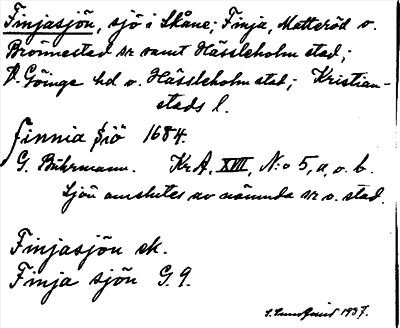 Finjasjön, sjö i Skåne; Finja, Matteröd o.
Brönnestad sn samt Hässleholm stad;
V. Göinge hd o. Hässleholm stad; Kristian-
stads l.
Finnia Siö 1684.
G. Buhrmann. KrA, XVII, N:o 5, a, o. b.
Sjön omslutes av nämnda sn o. stad.
Finjasjön ek.
Finja sjön G. 9.
1937.